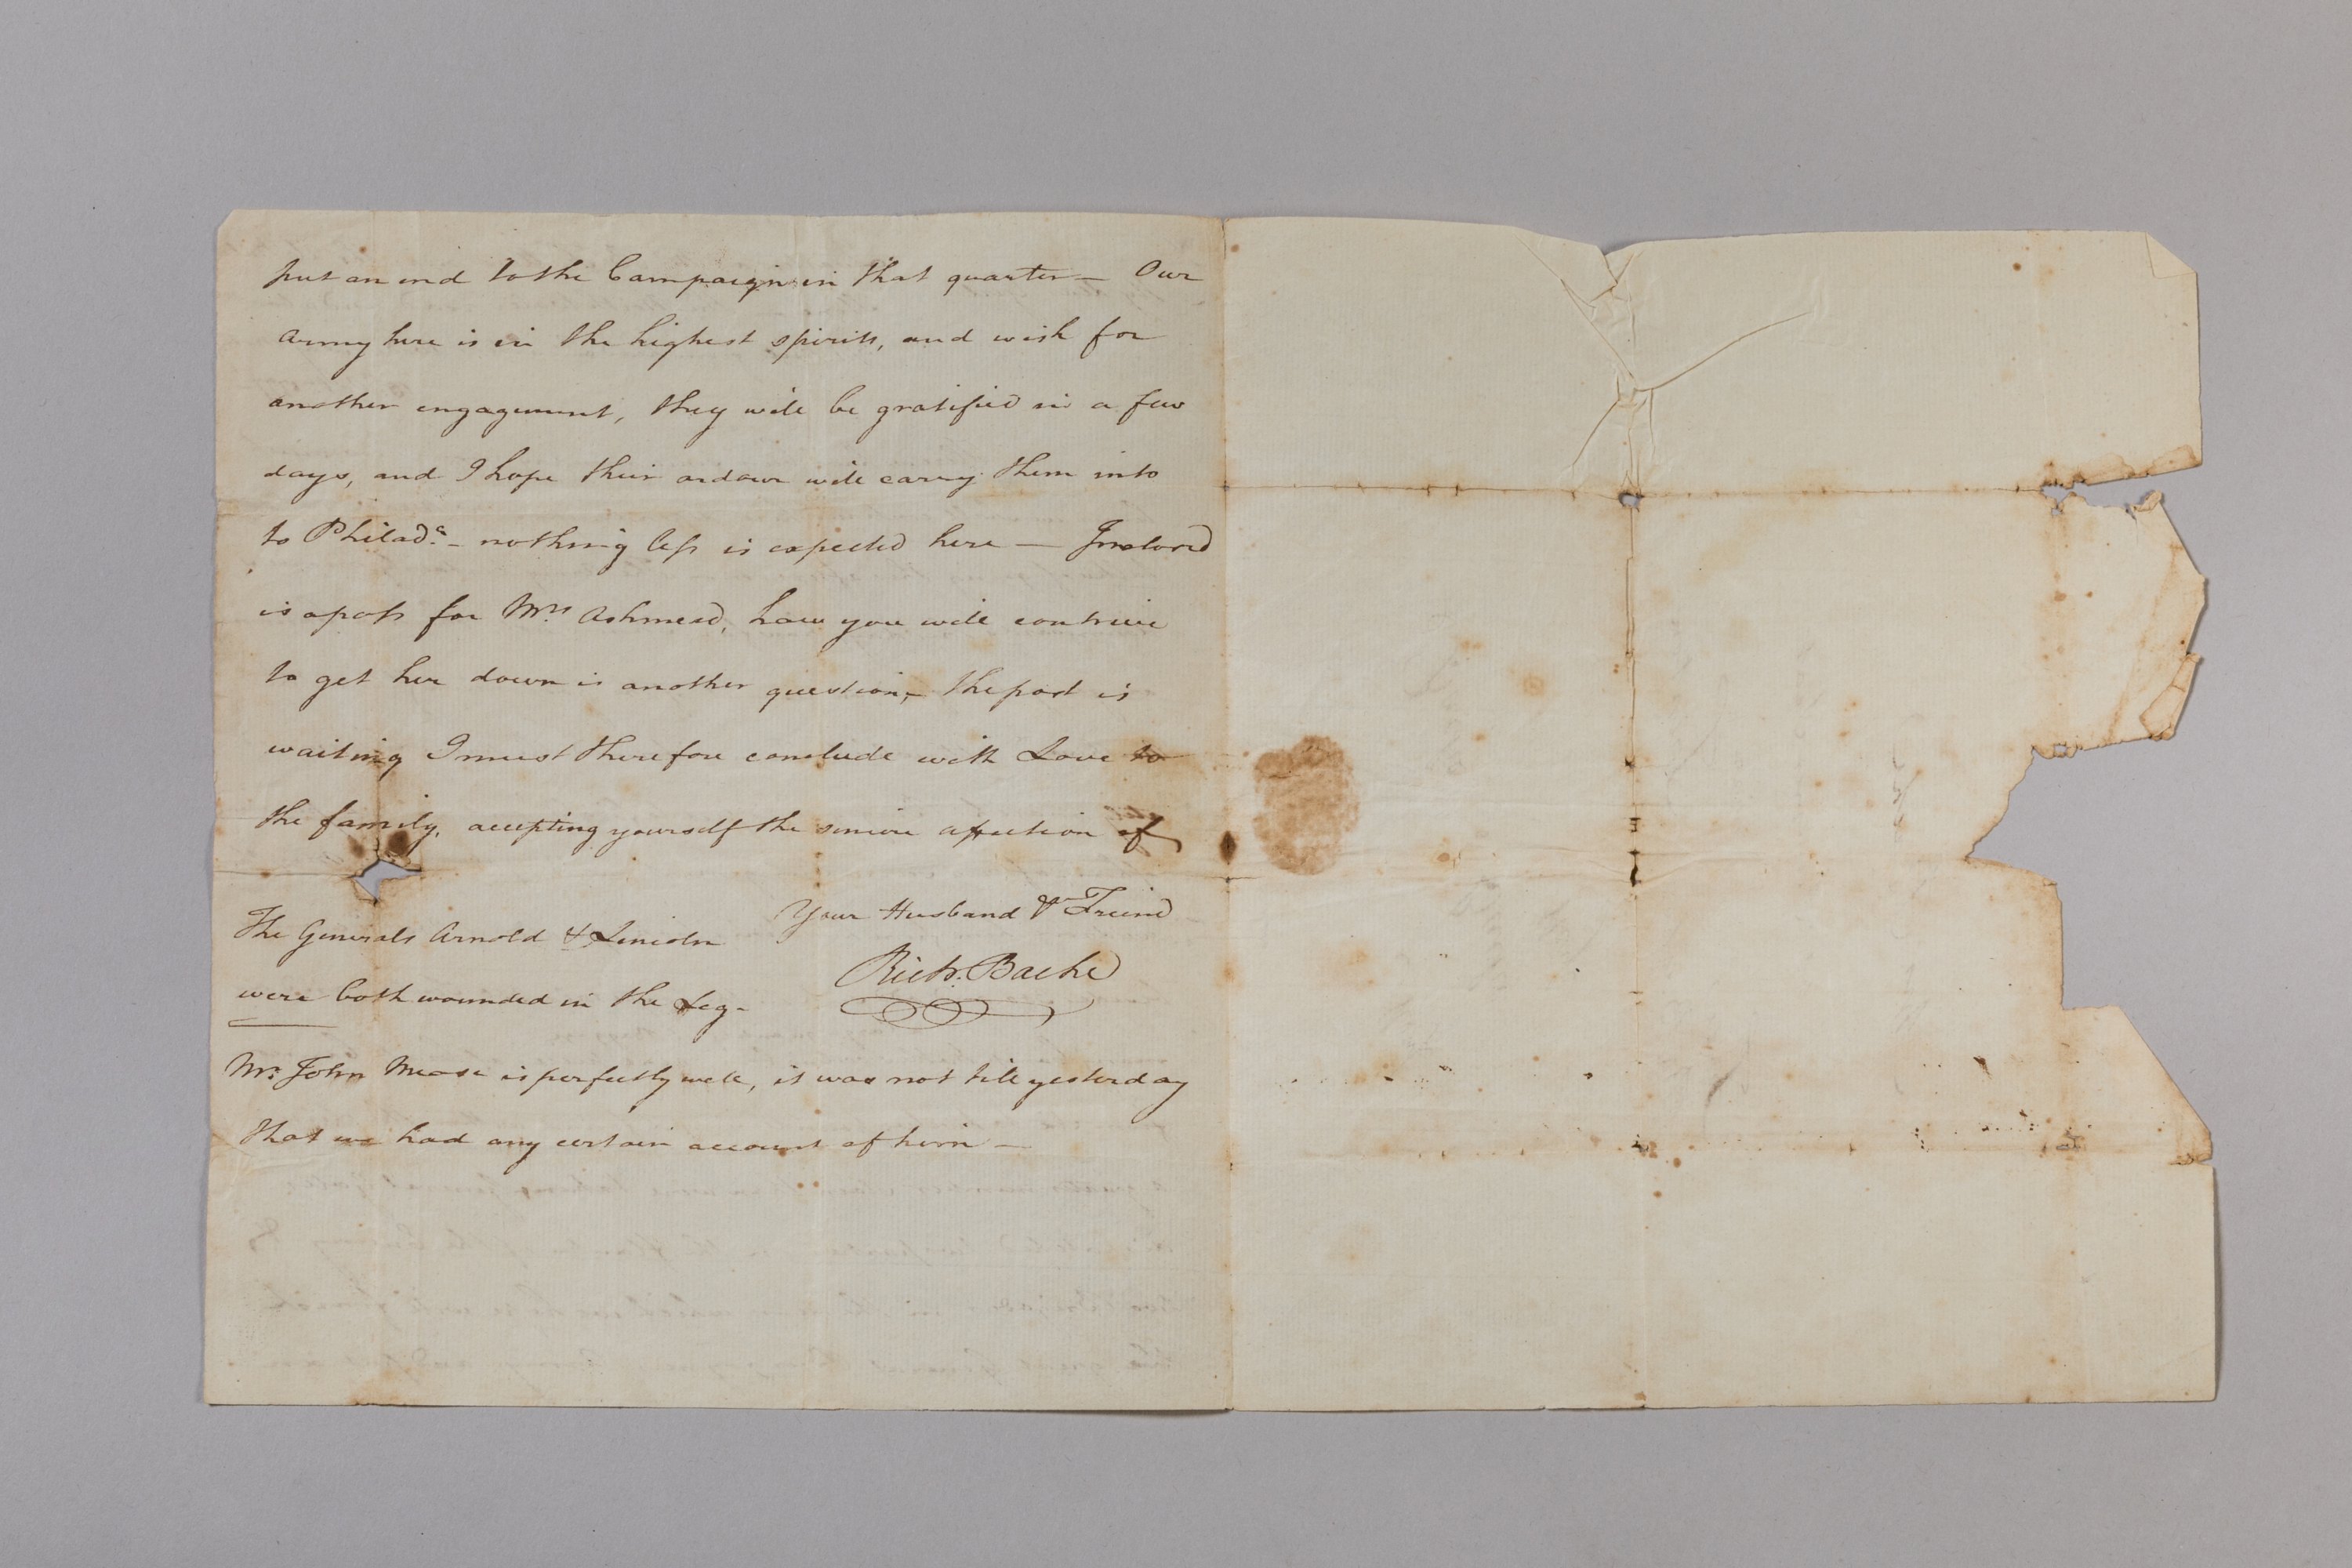 put an end to the Campaign in that quarter — Our
army here is in the highest spirits, and wish for
another engagement, they will be gratified in a few
days, and I hope their ardour will carry them into
to Philad.ª – nothing less is expected here — Inclosed
is a pass for M.rs Ashmead, how you will contrive
to get her down is another question,– the post is
waiting I must therefore conclude with Love to
the family, accepting yourself the sincere affection of
Your Husband & Freind
Rich.d Bache
The Generals Arnold & Lincoln
were both wounded in the Leg –
M.r John Mease is perfectly well, it was not till yesterday
that we had any certain account of him —